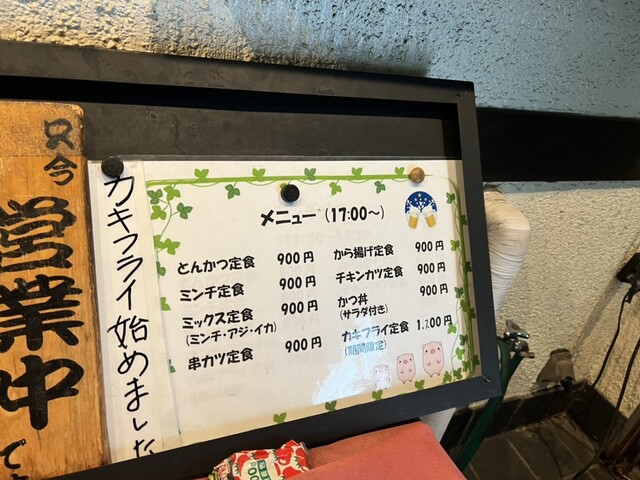 只今
営業中
で
カキフライ始めました
メニュー (17:00～)
とんかつ定食 900円
ミンチ定食 900円
ミックス定食 900円
(ミンチ・アジ・イカ)
串カツ定食 900円
から揚げ定食 900円
チキンカツ定食 900円
かつ丼 900円
(サラダ付き)
カキフライ定食 1,200円
(期間限定)